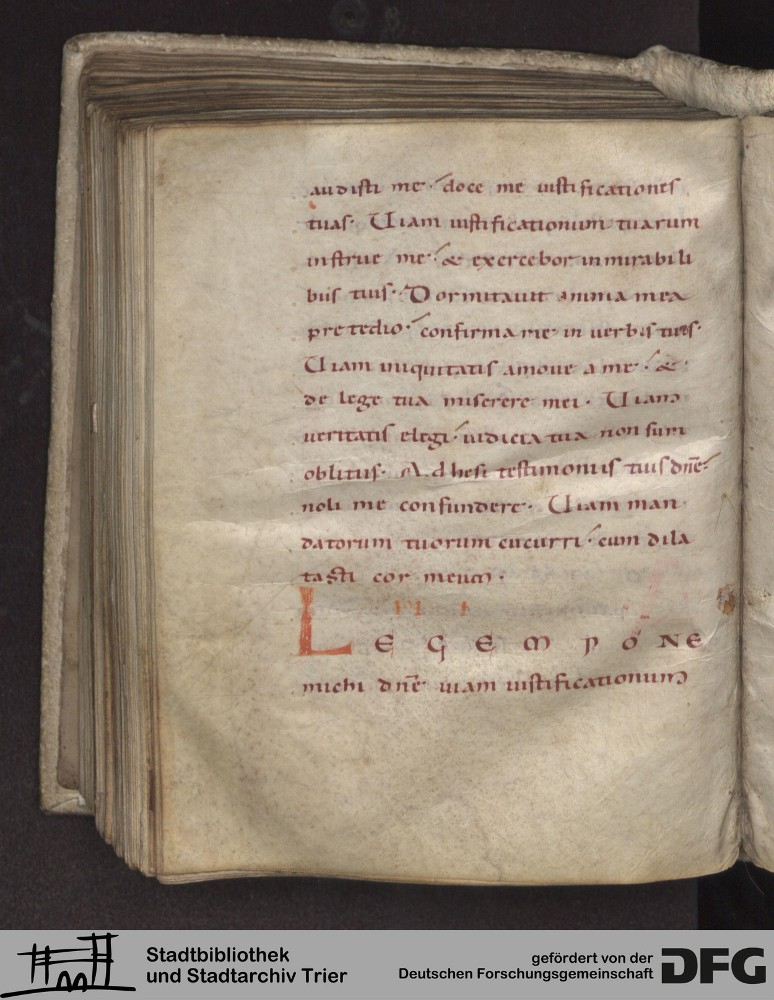 audisti me· doce me iustificationes
tuas· Uiam iustificationum tuarum
instrue me· & exercebor in mirabili
bus tuis· Dormitauit anima mea
pre tedio· confirma me in uerbis tuis·
Uiam iniquitatis amoue a me· &
de lege tua miserere mei· Uiam
ueritatis elegi· iudicia tua non sum
oblitus· Adhesi testimoniis tuis dn̄e·
noli me confundere· Uiam man
datorum tuorum cucurri· cum dila
tasti cor meum·
LEGEM PONE
michi dn̄e uiam iustificationum
Stadtbibliothek
und Stadtarchiv Trier
gefördert von der
Deutschen Forschungsgemeinschaft
DFG